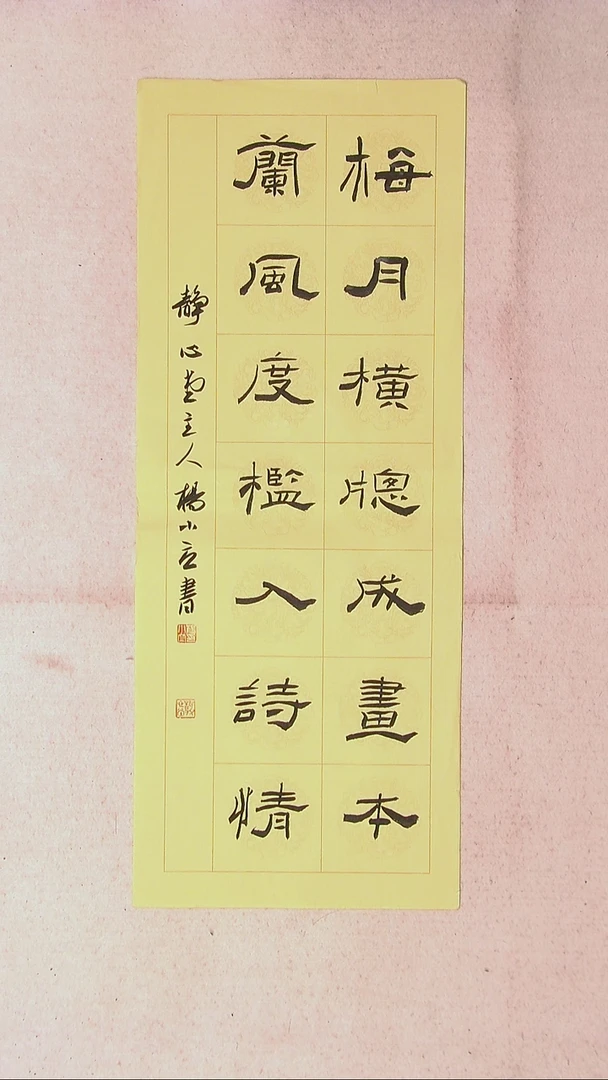 梅月橫牕成畫本
蘭風度檻入詩情
靜心堂主人楊小立書